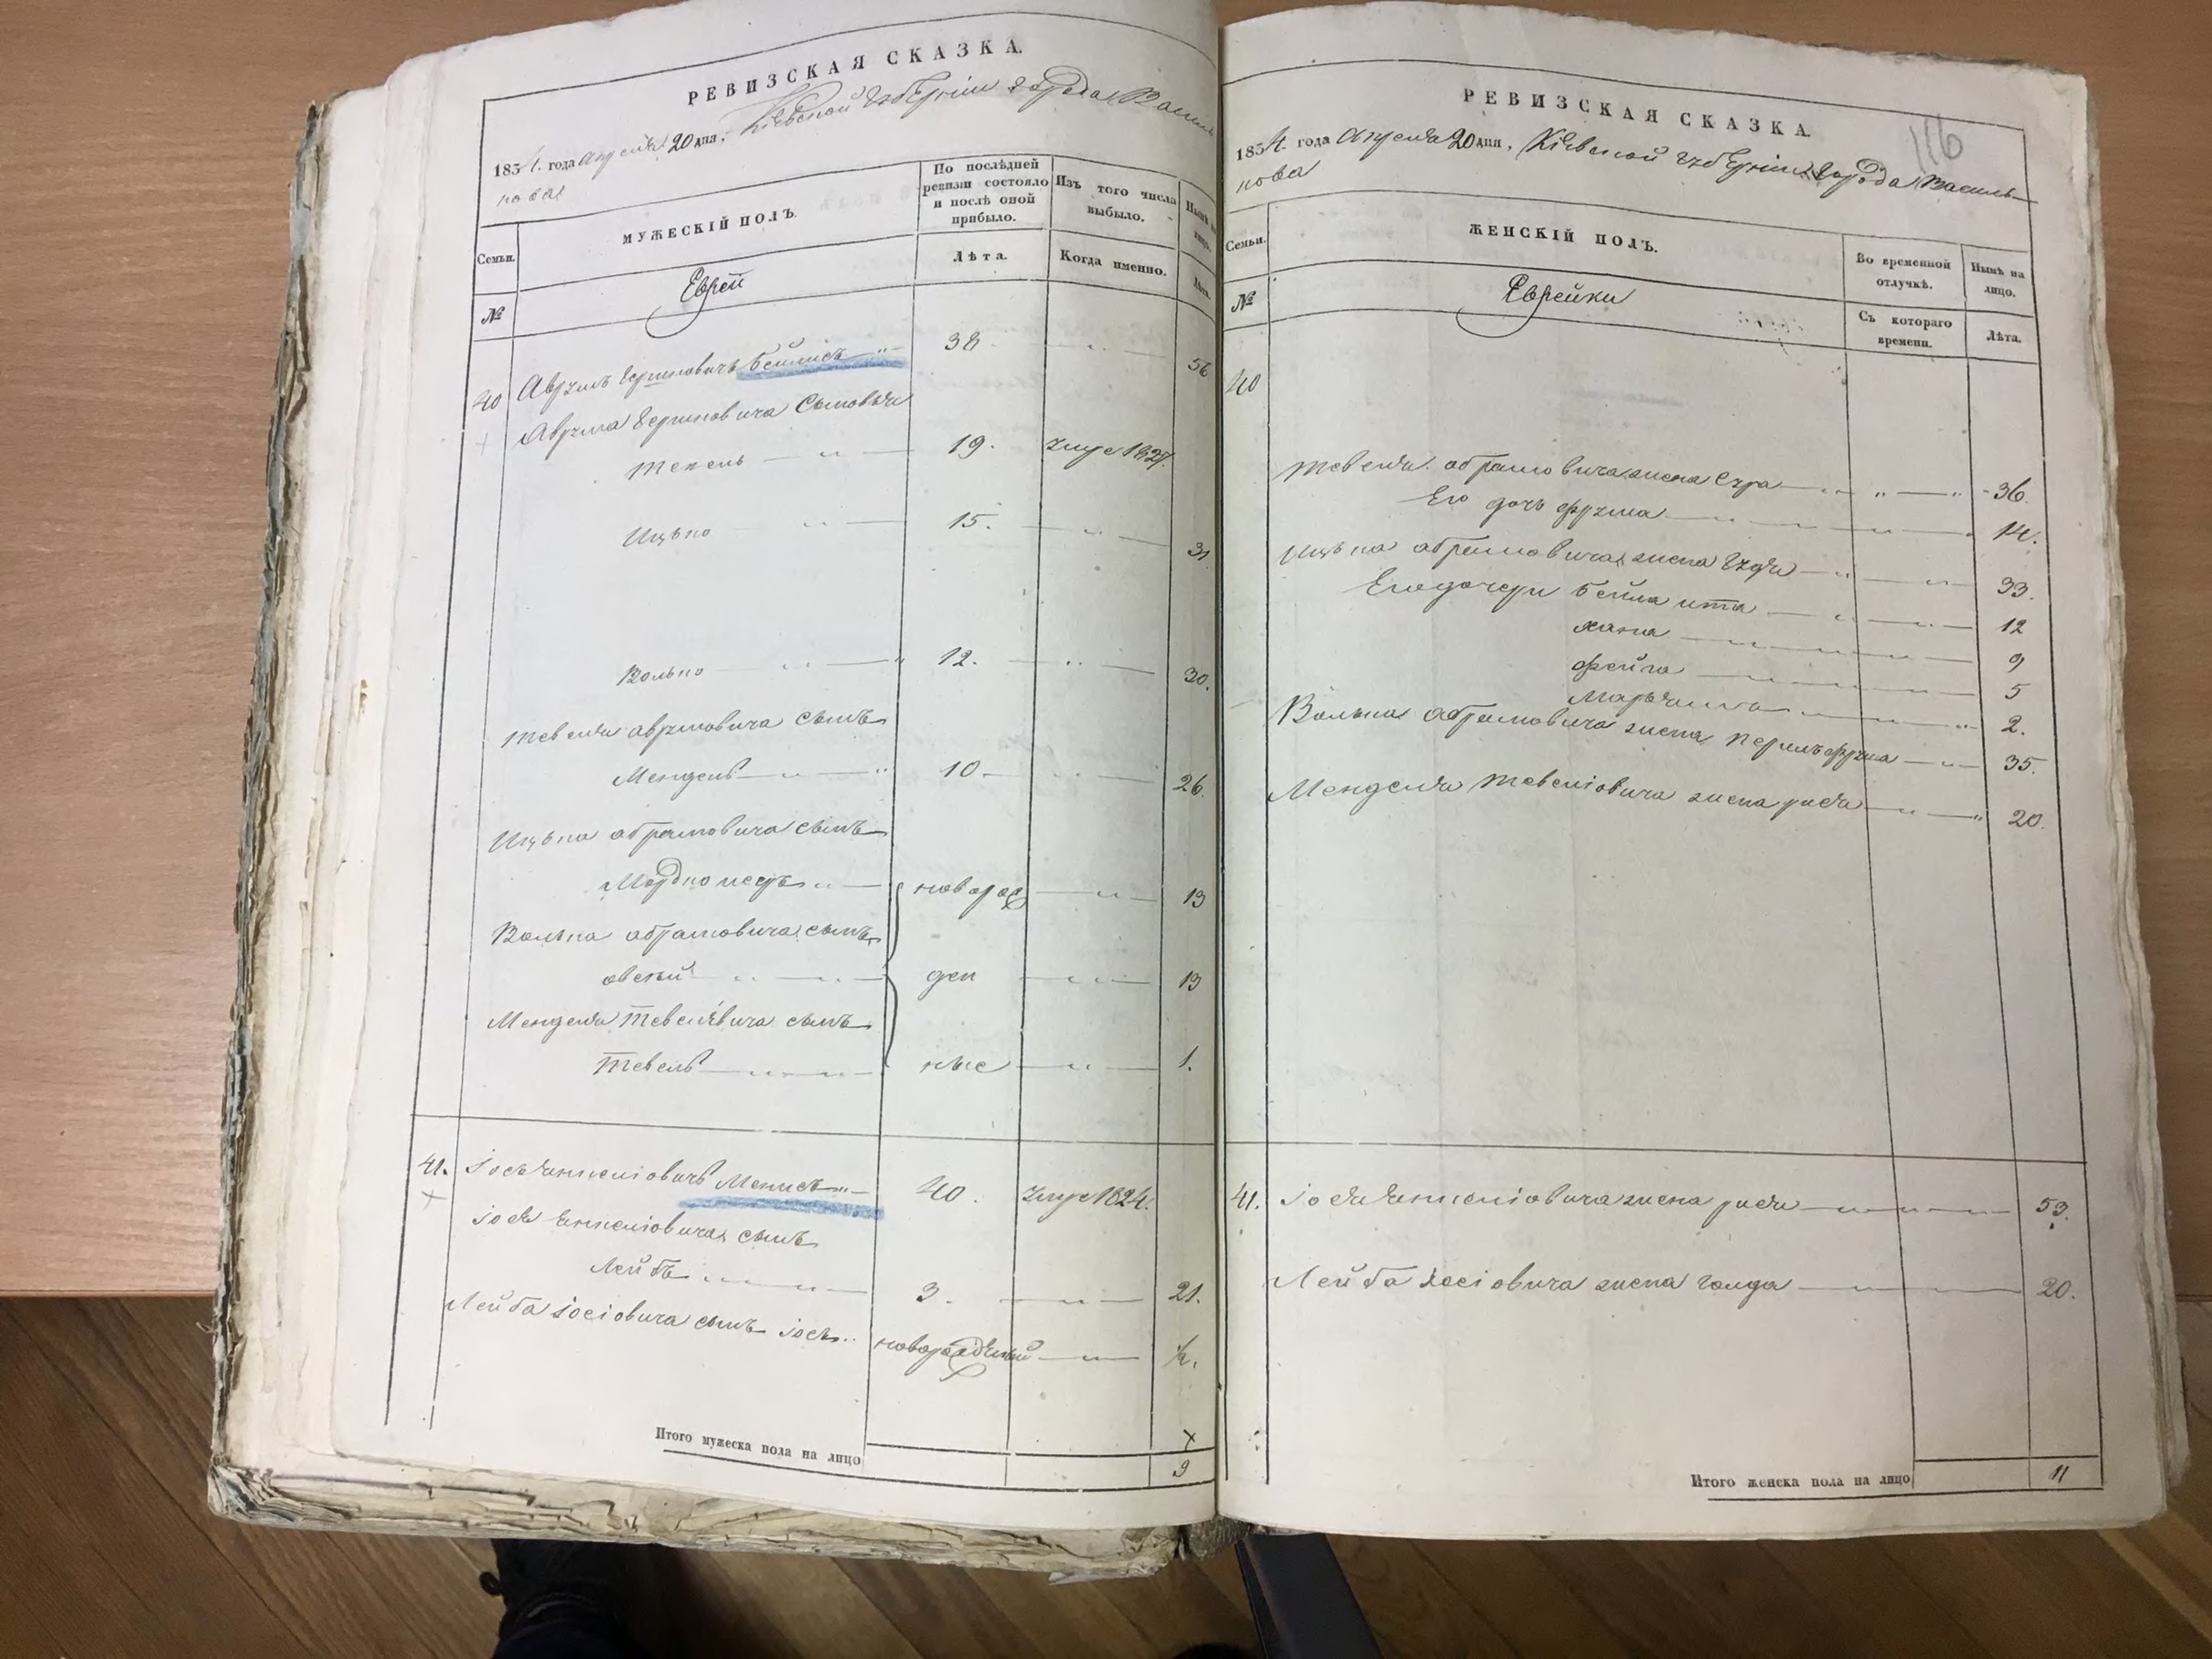 РЕВИЗСКАЯ СКАЗКА.
1854. года Апреля 20 дня, Кіевской Губерніи города Василь
кова
Семьи.
МУЖЕСКІЙ ПОЛЪ.
По послѣдней ревизіи состояло и послѣ оной прибыло.
Изъ того числа выбыло.
Нынѣ на лицо.
№
Еврей
Лѣта.
Когда именно.
Лѣта.
40 Аврумъ Гершковичъ Бейлисъ 38 56
Аврума Гершковича Сыновья
Тевель 19. умре 1827.
Ицько 15. 31
Волько 12. 30.
Тевеля Аврумовича сынъ
Мендель 10 26.
Ицька абрамовича сынъ
Мордко новорож 13
Волька абрамовича сынъ
овсей ден 13
Менделя Тевелевича сынъ
Тевель ные 1.
41. Іось Янкеліовичъ 40. умре 1824.
Іося Янкеліовича сынъ
Лейба 3. 21.
Лейба Іосіовича сынъ Іось новорожденный ½.
Итого мужеска пола на лицо
9
РЕВИЗСКАЯ СКАЗКА.
116
1854. года Апреля 20 дня, Кіевской Губерніи города Василь
кова
Семьи.
ЖЕНСКІЙ ПОЛЪ.
Во временной отлучкѣ.
Нынѣ на лицо.
№
Еврейки
Съ котораго времени.
Лѣта.
40
Тевеля абрамовича жена Сура 36.
Его дочь фрума 14.
Ицька абрамовича жена 33.
Его дочери Бейла ита 12
хана 9
фейга 5
Марьяша 2.
Волька абрамовича жена перль фрума 35.
Менделя Тевеліовича жена рися 20.
41. Іося Янкеліовича жена рися 53.
Лейба Іосіовича жена голда 20.
Итого женска пола на лицо
11